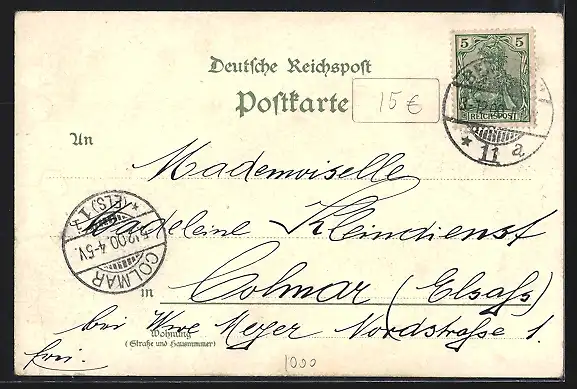 Deutsche Reichspost
Postkarte
15 €
5 5
REICHSPOST
BER
* 11 a.
An
Mademoiselle
Madeleine Kleindienst
in Colmar (Elsaß)
bei Wwe Meyer Nordstraße 1.
Wohnung
(Straße und Hausnummer)
frei.
* (ELS) 1
5.12.00. 4-5V.
COLMAR
1000